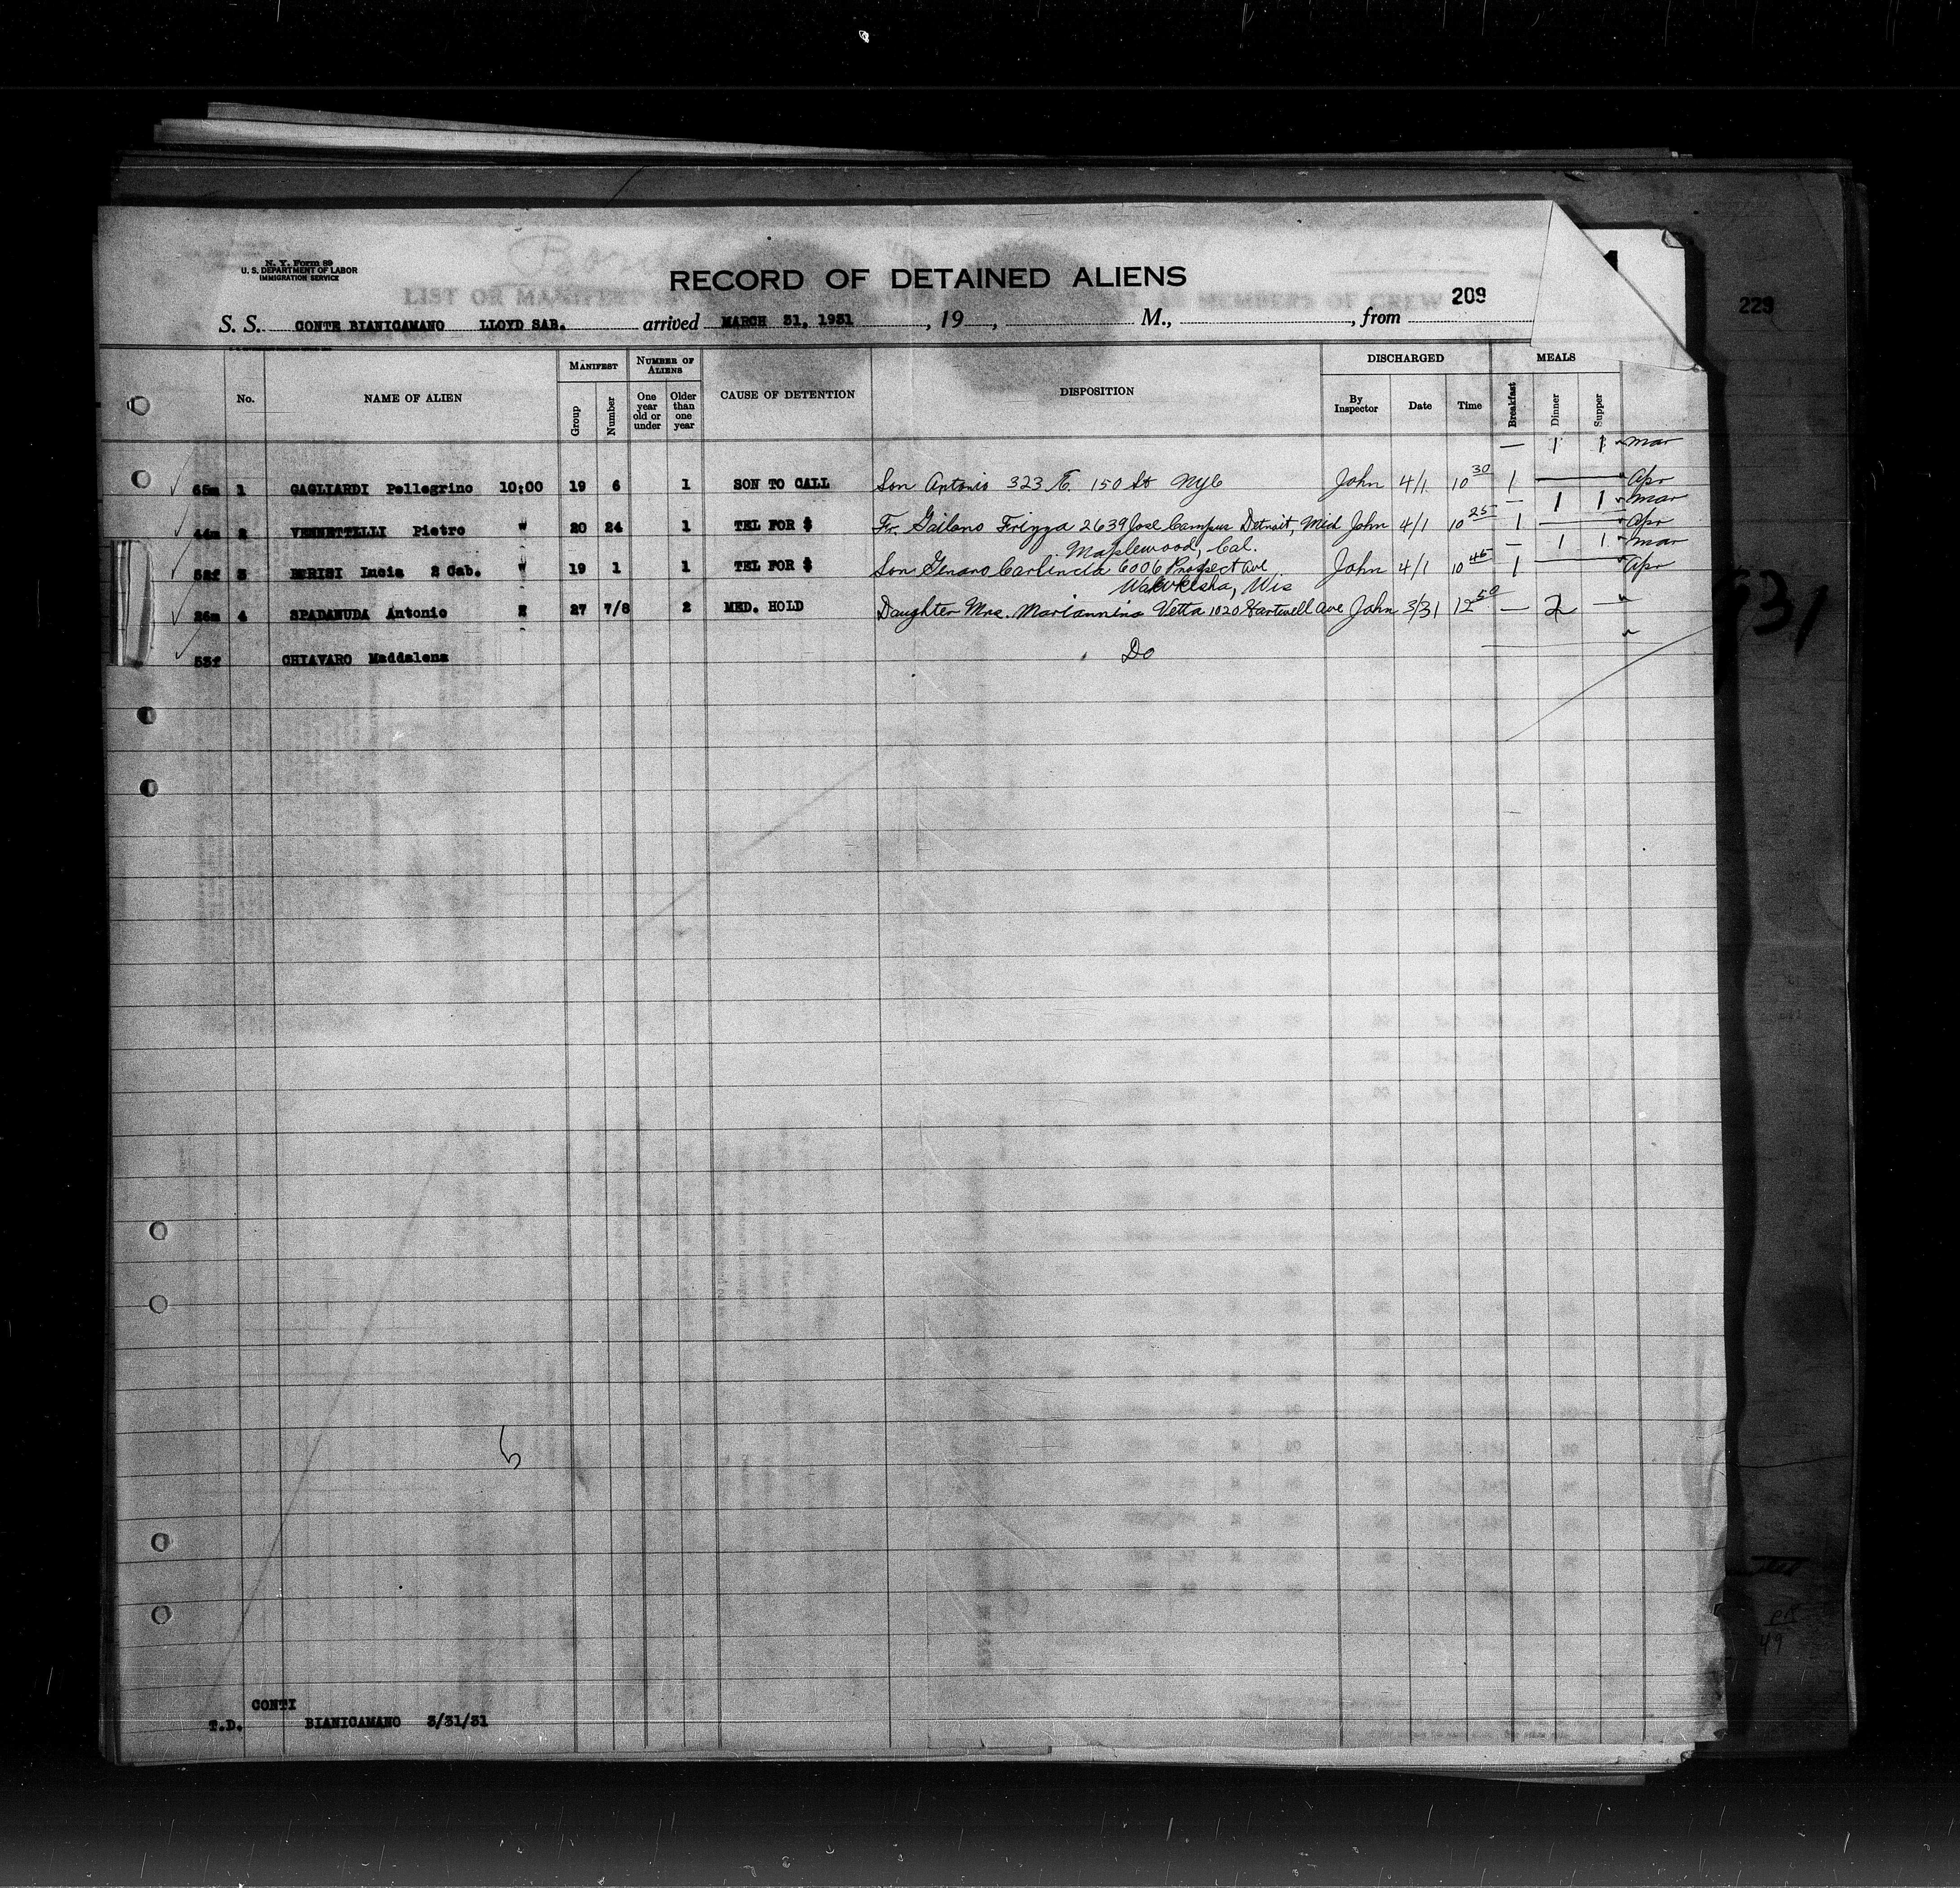 N. Y. Form 89
U. S. DEPARTMENT OF LABOR
IMMIGRATION SERVICE
RECORD OF DETAINED ALIENS
209
229
S. S. CONTE BIANICAMANO LLOYD SAB. arrived MARCH 31, 1931, 19, M., from
No. NAME OF ALIEN MANIFEST Group Number NUMBER OF ALIENS One year old or under Older than one year CAUSE OF DETENTION DISPOSITION DISCHARGED By Inspector Date Time MEALS Breakfast Dinner Supper
— 1 1 mar
65m 1 GAGLIARDI Pellegrino 10:00 19 6 1 SON TO CALL Son Antonio 323 E. 150 St NYC John 4/1 10 30 1 Apr
— 1 1 mar
44m 2 VENNETTILLI Pietro W 20 24 1 TEL FOR $ Fr. Gailano Frizza 2639 Jos Campus Detroit, Mich John 4/1 10 25 1 Apr
Maplewood, Cal. — 1 1 mar
52f 3 Lucia 2 Cab. W 19 1 1 TEL FOR $ Son Genaro 6006 Prospect Ave John 4/1 10 45 1 Apr
Waukesha, Wis
26m 4 SPADANUDA Antonio 27 7/8 2 MED. HOLD Daughter Mrs. Mariannina Vetta 1020 Hartwell Ave John 3/31 12 50 — 2 —
53f CHIAVARO Maddalena Do
931
CONTI
T.D. BIANICAMANO 3/31/31